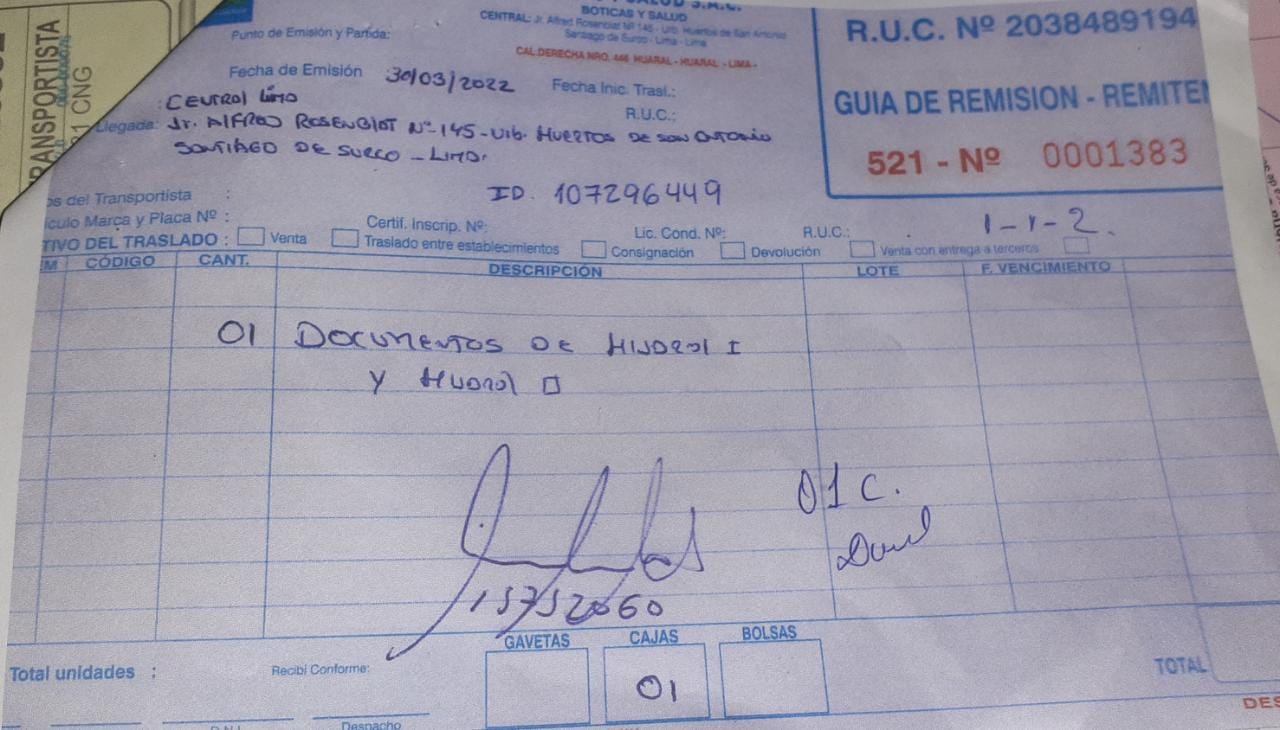 TRANSPORTISTA
CNG
BOTICAS Y SALUD
CENTRAL: Jr. Alfred Rosenblat Nº 145 - Urb. Huertos de San Antonio
Santiago de Surco - Lima - Lima
CAL. DERECHA NRO. 446 HUARAL - HUARAL - LIMA -
R.U.C. Nº 2038489194
GUIA DE REMISION - REMITEN
521 - Nº 0001383
Punto de Emisión y Partida:
Fecha de Emisión 30/03/2022 Fecha Inic. Trasl.:
: CENTROL LIMO R.U.C.:
Llegada: Jr. ALFRED ROSENBLOT Nº 145 - Urb. HUERTOS DE SON ONTONIO
SONTIAGO DE SURCO - LIMO.
os del Transportista :
ID. 107296449
ículo Marca y Placa Nº : Certif. Inscrip. Nº: Lic. Cond. Nº: R.U.C.: 1-1-2.
TIVO DEL TRASLADO : Venta Traslado entre establecimientos Consignación Devolución Venta con entrega a terceros
EM CÓDIGO CANT. DESCRIPCIÓN LOTE F. VENCIMIENTO
01 DOCUMENTOS DE HUOROL I
Y HUOROL II
01 C.
15752060
GAVETAS CAJAS BOLSAS
Total unidades : Recibí Conforme: 01 TOTAL
D.N.I. Despacho
DES